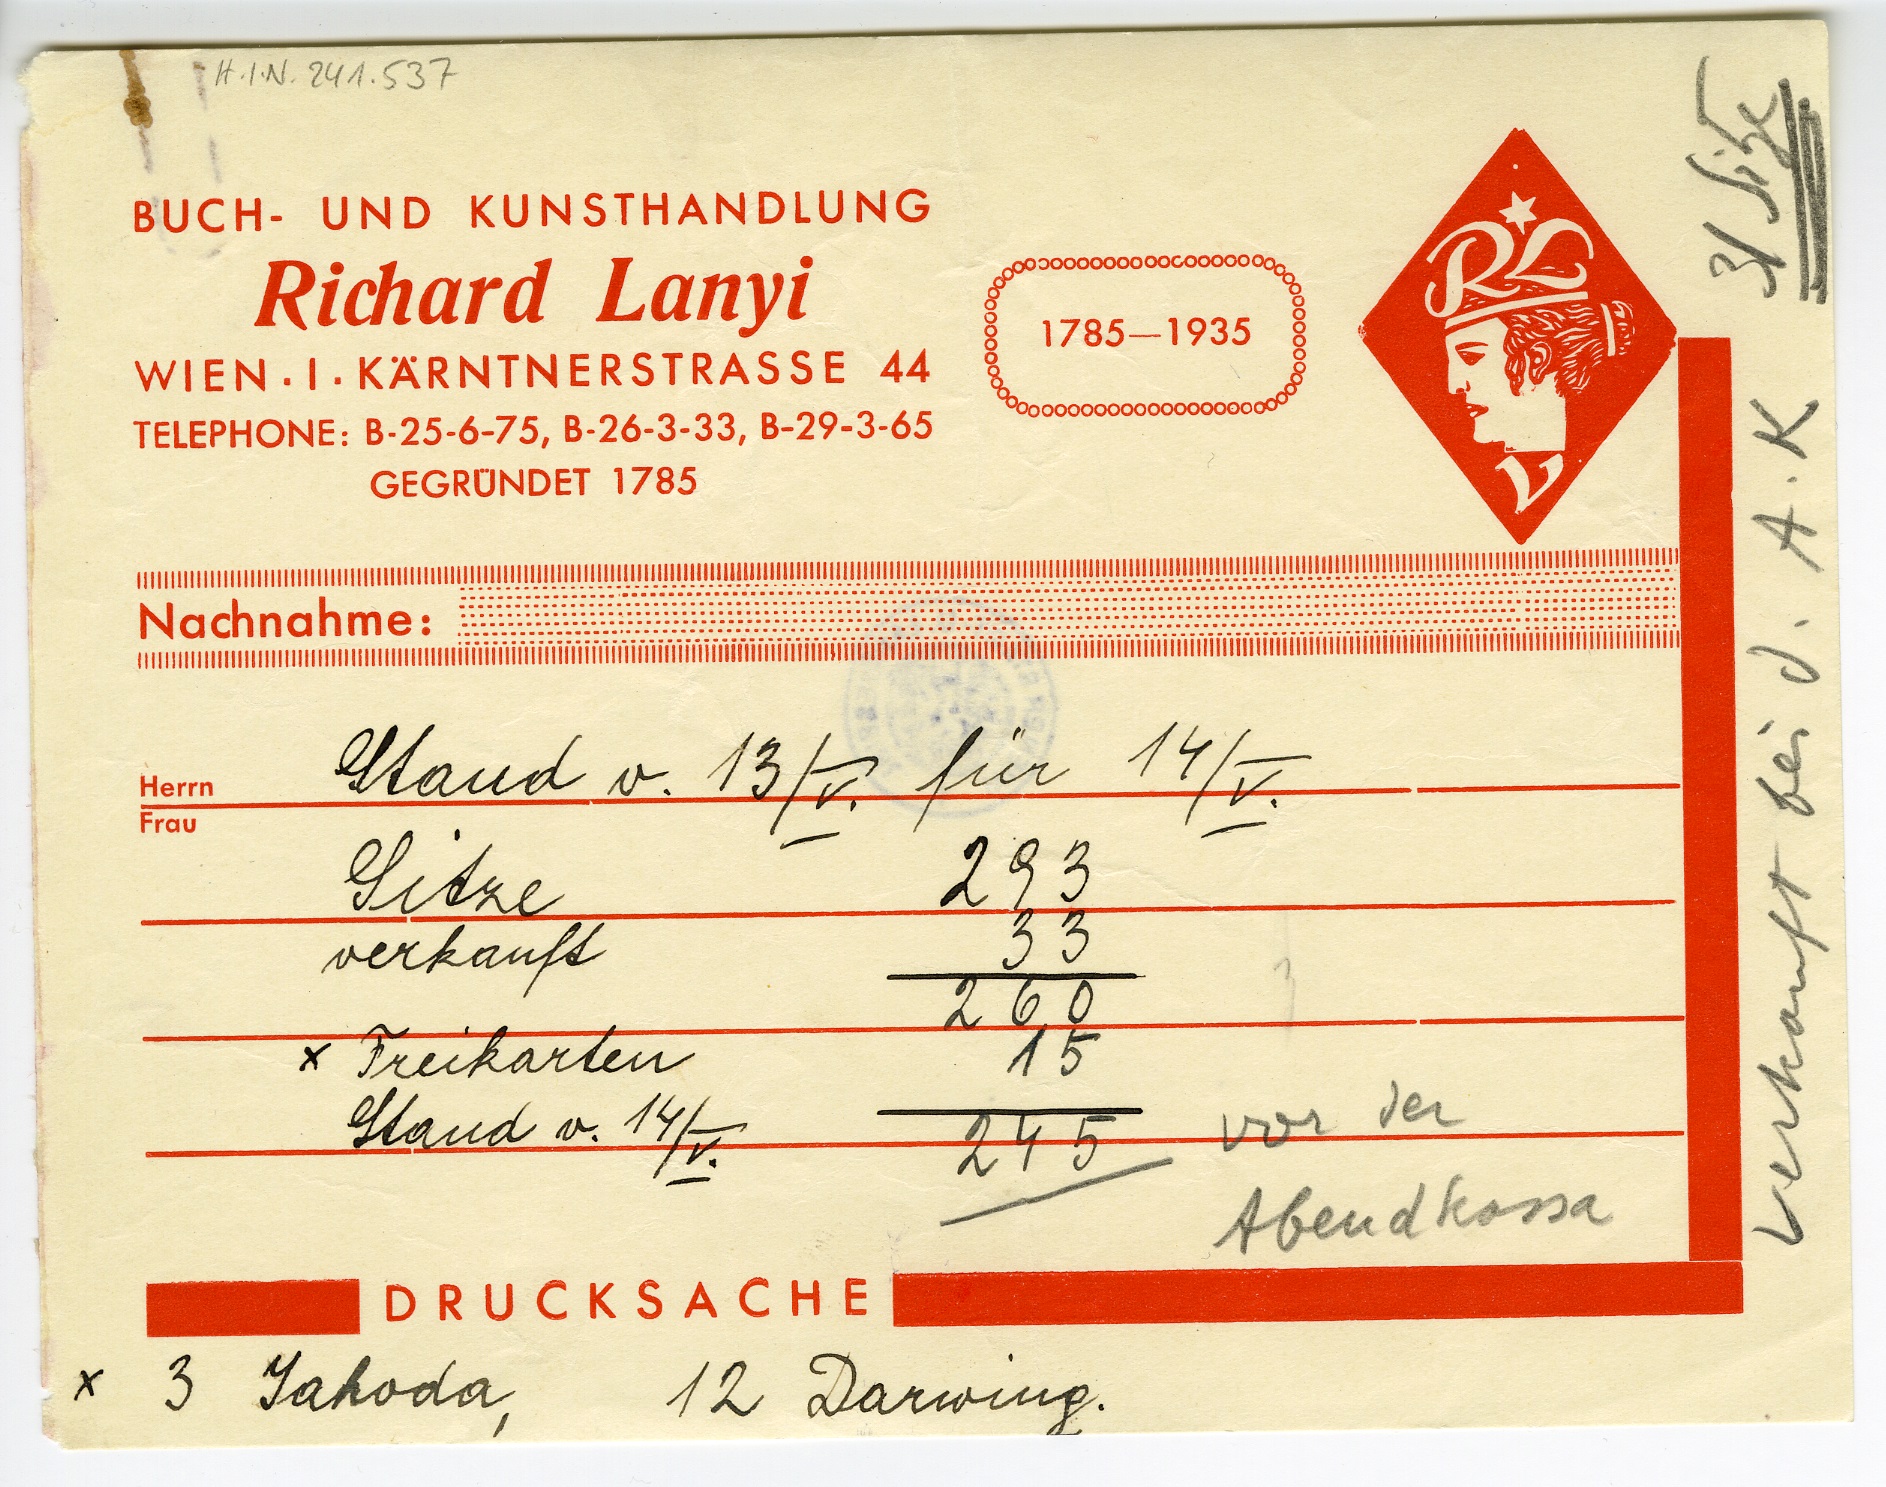 H.I.N. 241.537
BUCH- UND KUNSTHANDLUNG
Richard Lanyi
WIEN · I · KÄRNTNERSTRASSE 44
TELEPHONE: B-25-6-75, B-26-3-33, B-29-3-65
GEGRÜNDET 1785
1785—1935
RL
Nachnahme:
Herrn
Frau
Stand v. 13/V. für 14/V.
Sitze 293
verkauft 33
260
x Freikarten 15
Stand v. 14/V. 245 vor der
Abendkassa
DRUCKSACHE
x 3 Jahoda, 12 Darwing.
verkauft bei d. A. K
31 Sitze